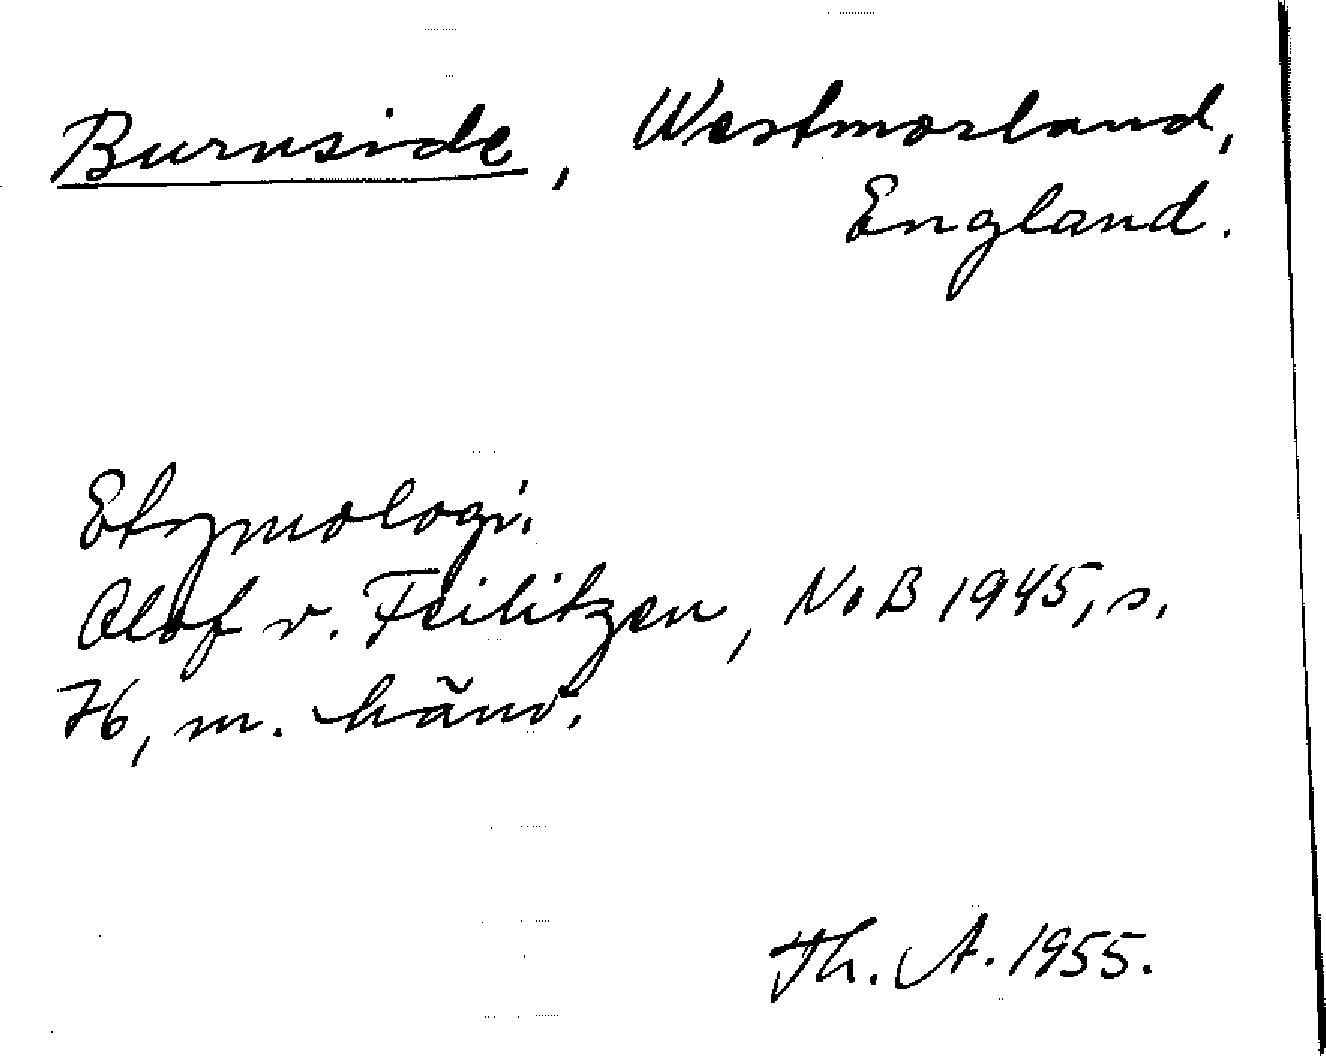 Burnside, Westmorland,
England.
Etymologi.
Olof v. Feilitzen, NoB 1945, s.
76, m. hänv.
Th. A. 1955.